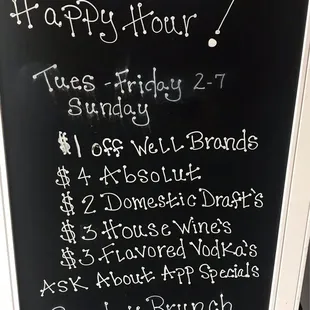 Happy Hour!
Tues - Friday 2-7
Sunday
$1 off Well Brands
$4 Absolut
$2 Domestic Draft's
$3 House Wine's
$3 Flavored Vodka's
Ask About App Specials
Sunday Brunch